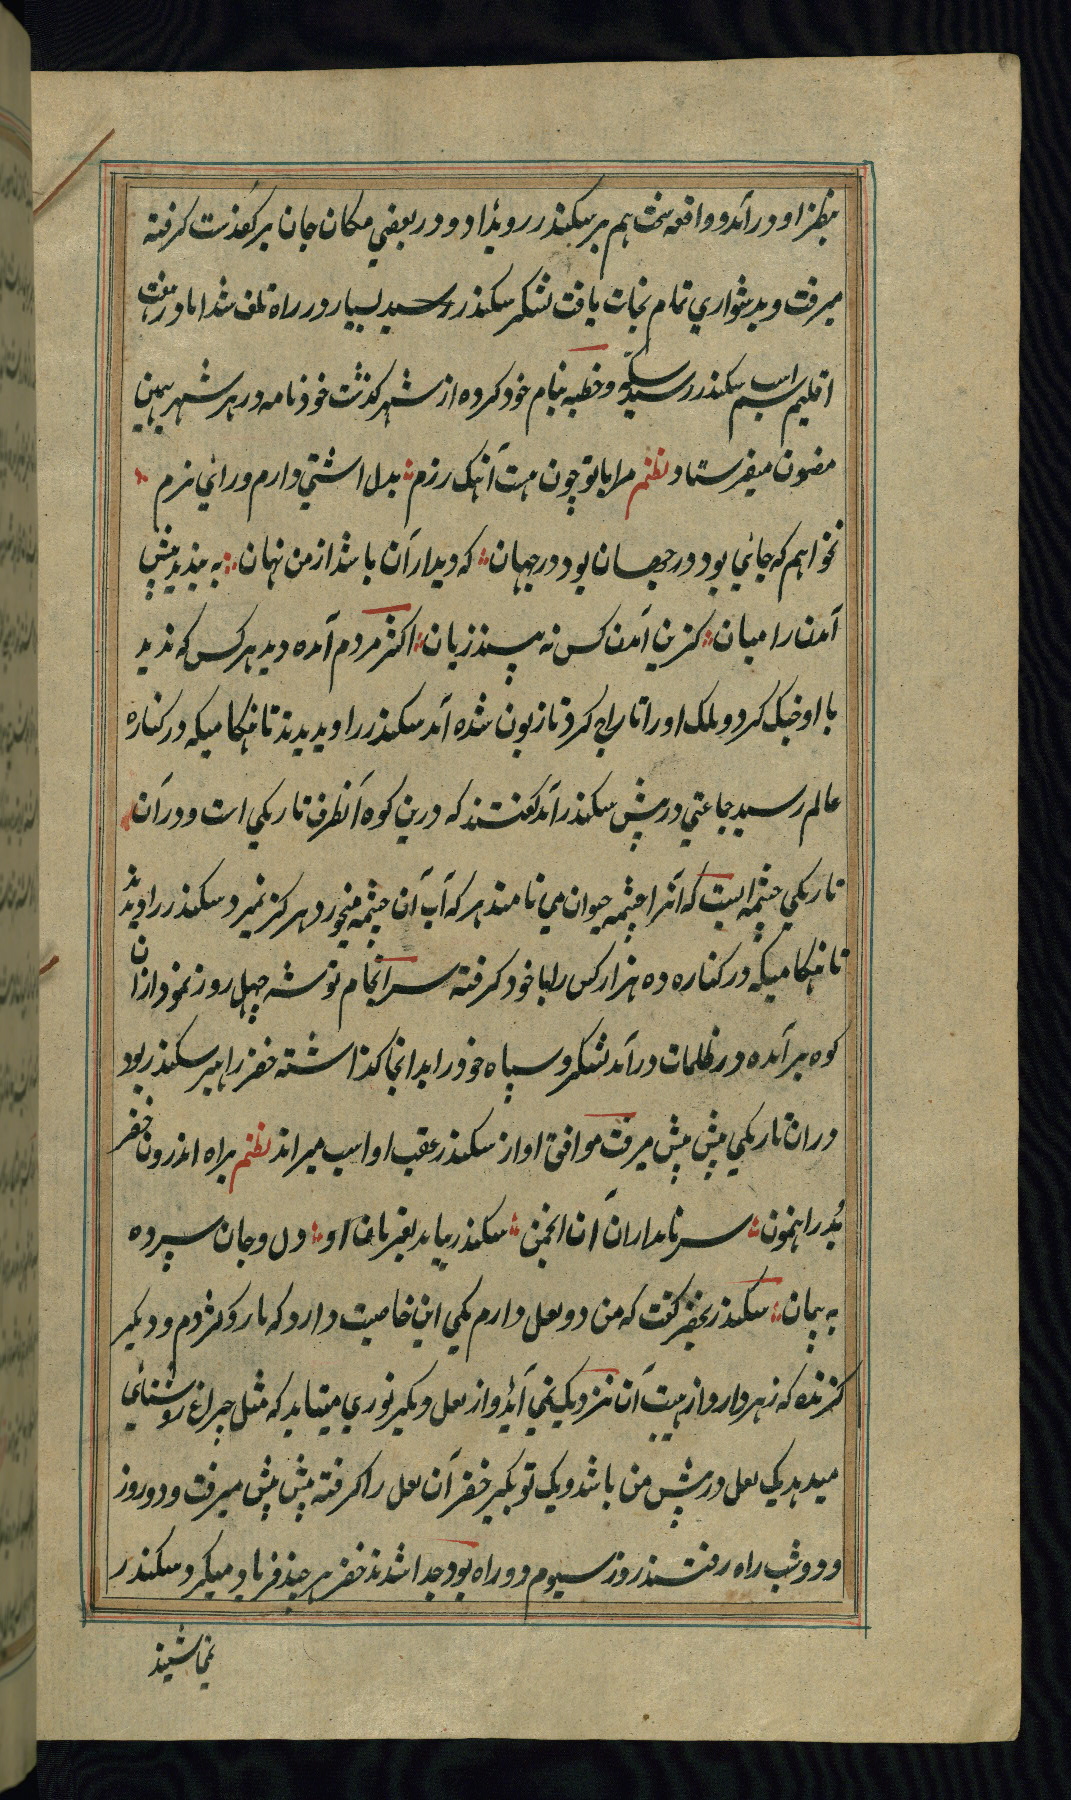 بنظر او در آمد و واقعه سخت هم بر سکندر رویداد و در بعضي مکان جان بر کف دست گرفته
میرفت و بدشواري تمام نجات یافت لشکر سکندر و سپه بسیار در راه تلف شد اما در هفت
اقلیم اسم سکندر رسید سکه و خطبه بنام خود کرده از شهر گذشت خود نامه در هر شهر بهمین
مضمون میفرستاد نظم مرا با تو چون هست آهنگ رزم بدل آشتي دارم و رأي بزم
نخواهم که جائي بود در جهان بود در جهان که دیدار آن باشد از من نهان به بندید پیش
آمدن را میان کزین آمدن کس نه بیند زیان اکثر مردم آمده دید هر کس که ندید
با او جنگ کرد و ملک او را تاراج کرد تا زبون شده آمد سکندر را دیدند تا هنگامیکه در کناره
عالم رسید جماعتي در پیش سکندر آمد گفتند که درین کوه آنطرف تاریکي است و در آن
تاریکي چشمه ایست که آنرا چشمه حیوان مي نامند هر که آب آن چشمه میخورد هرگز نمیرد سکندر را دیدند
تا هنگامیکه در کناره ده هزار کس را با خود گرفته سرانجام توشه چهل روز نمود از آن
کوه بر آمده در ظلمات در آمد لشکر و سپاه خود را بدانجا گذاشته خضر راهبر سکندر بود
در ان تاریکي پیش پیش میرفت موافق اواز سکندر عقب او اسپ میراند نظم براه اندرون خضر
بُد راهنمون سر نامداران آن انجمن سکندر بیامد بفرمان او دل و جان سپرده
به پیمان سکندر بخضر گفت که من دو لعل دارم یکي این خاصیت دارد که مار و کژدم و دیگر
گزنده که زهر دار و از هیبت آن نزدیک نمي آید و از لعل دیگر نوري میتابد که مثل چراغ روشنائي
میدهد یک لعل در پیش من باشد و یک تو بگیر خضر آن لعل را گرفته پیش پیش میرفت و دو روز
و دو شب راه رفتند روز سیوم دو راه بود جدا شدند خضر هر چند فریاد میکرد سکندر
نمي شنید